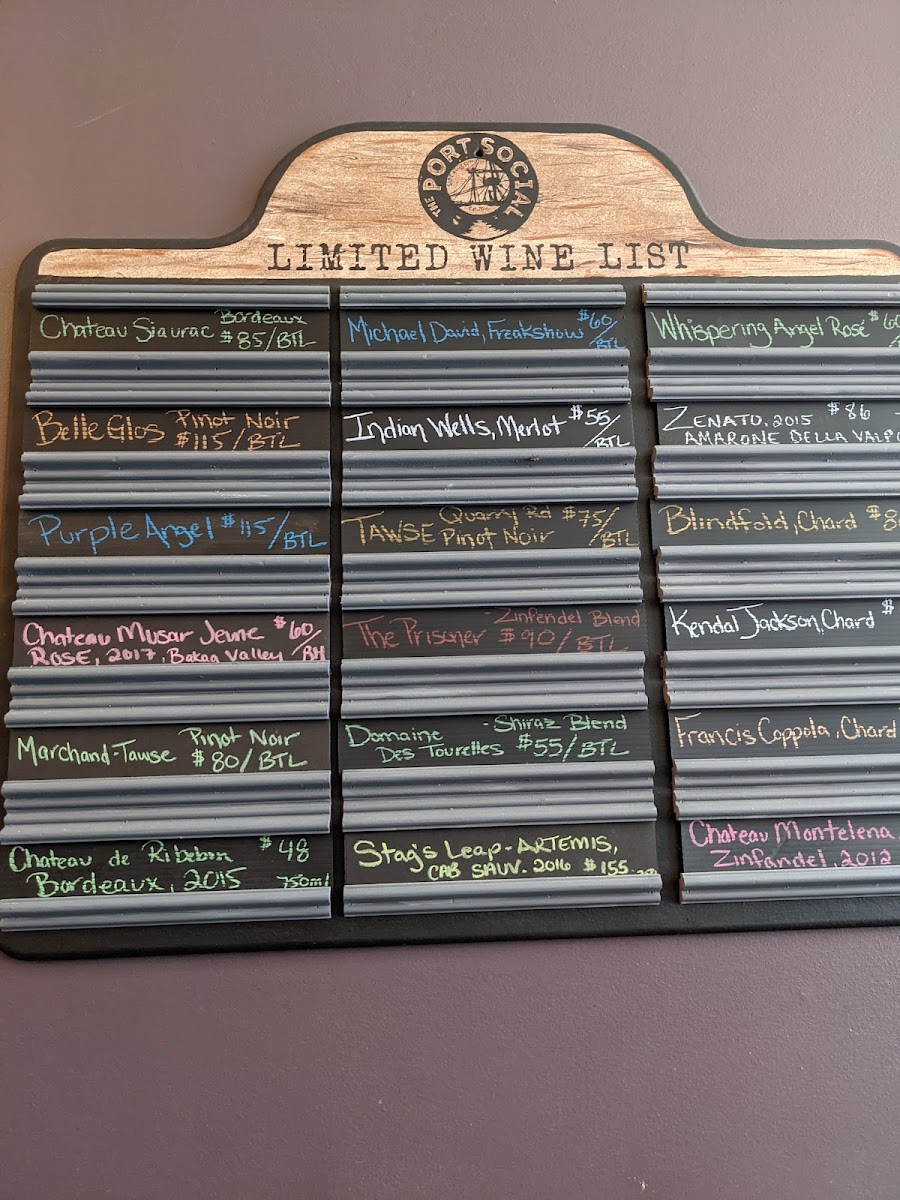 THE PORT SOCIAL
LIMITED WINE LIST
Chateau Siaurac Bordeaux
$85/BTL
Belle Glos Pinot Noir
$115/BTL
Purple Angel $115/BTL
Chateau Musar Jeune $60/
ROSE, 2017, Bakaa Valley
Marchand-Tawse Pinot Noir
$80/BTL
Chateau de Ribebon $48
Bordeaux, 2015 750ml
Michael David, Freakshow $60/
BTL
Indian Wells, Merlot $55/
BTL
TAWSE Quarry Rd $75/
Pinot Noir BTL
The Prisoner -Zinfendel Blend
$90/BTL
Domaine -Shiraz Blend
Des Tourelles $55/BTL
Stag's Leap-ARTEMIS,
CAB SAUV. 2016 $155.
Whispering Angel Rosé
ZENATO, 2015 $86
AMARONE DELLA
Blindfold, Chard
Kendal Jackson, Chard $
Francis Coppola, Chard
Chateau Montelena
Zinfandel, 2012